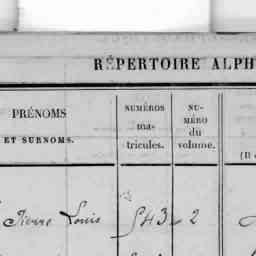 RÉPERTOIRE ALPH
PRÉNOMS
ET SURNOMS.
NUMÉROS
ma-
tricules.
NU-
MÉRO
du
volume.
(D
Pierre Louis 543 2